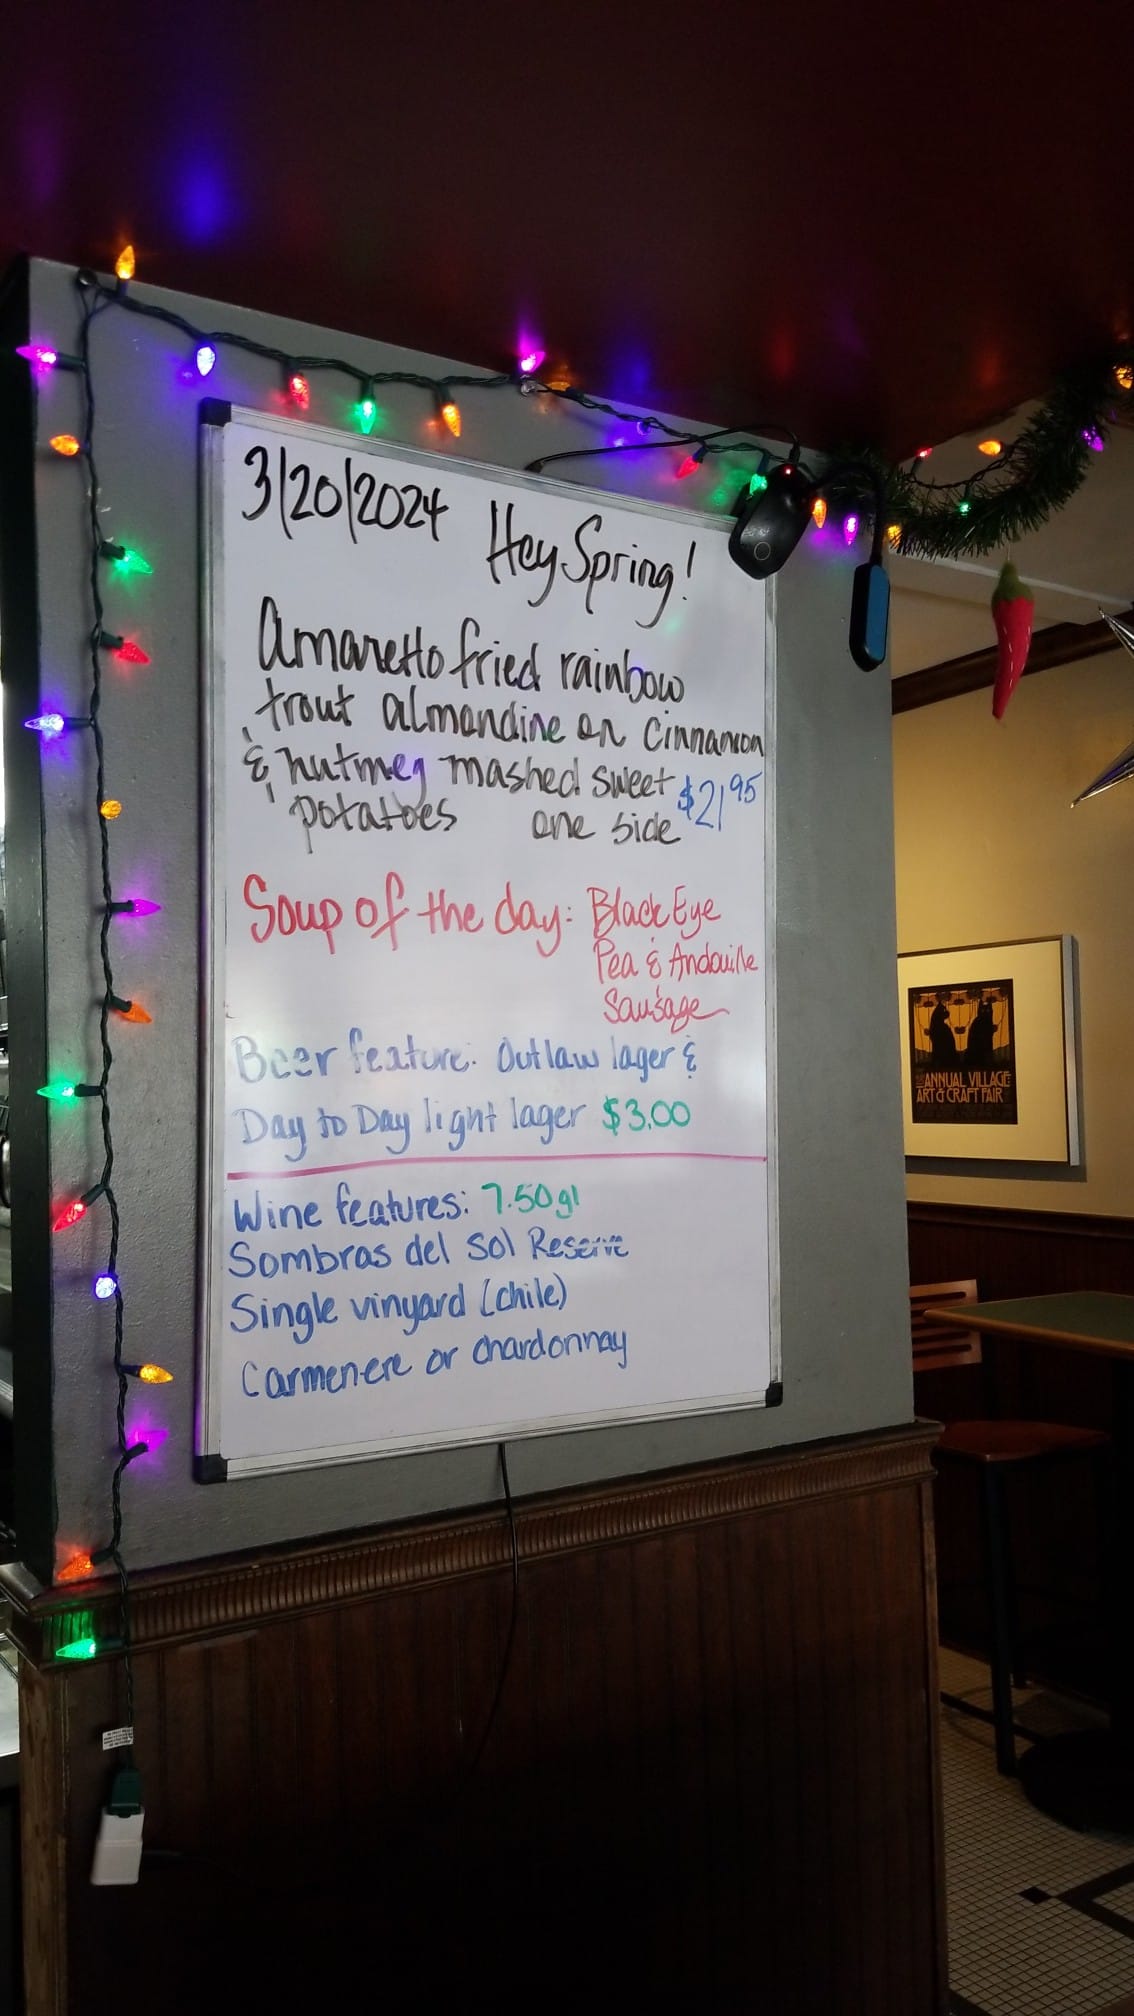 3/20/2024
Hey Spring!
Amaretto fried rainbow
trout almondine on cinnamon
& nutmeg mashed sweet
potatoes one side $21.95
Soup of the day: Black Eye
Pea & Andouille
Sausage
Beer feature: Outlaw lager &
Day to Day light lager $3.00
Wine features: 7.50gl
Sombras del Sol Reserve
Single vinyard (chile)
Carmenere or chardonnay
ANNUAL VILLAGE
ART & CRAFT FAIR